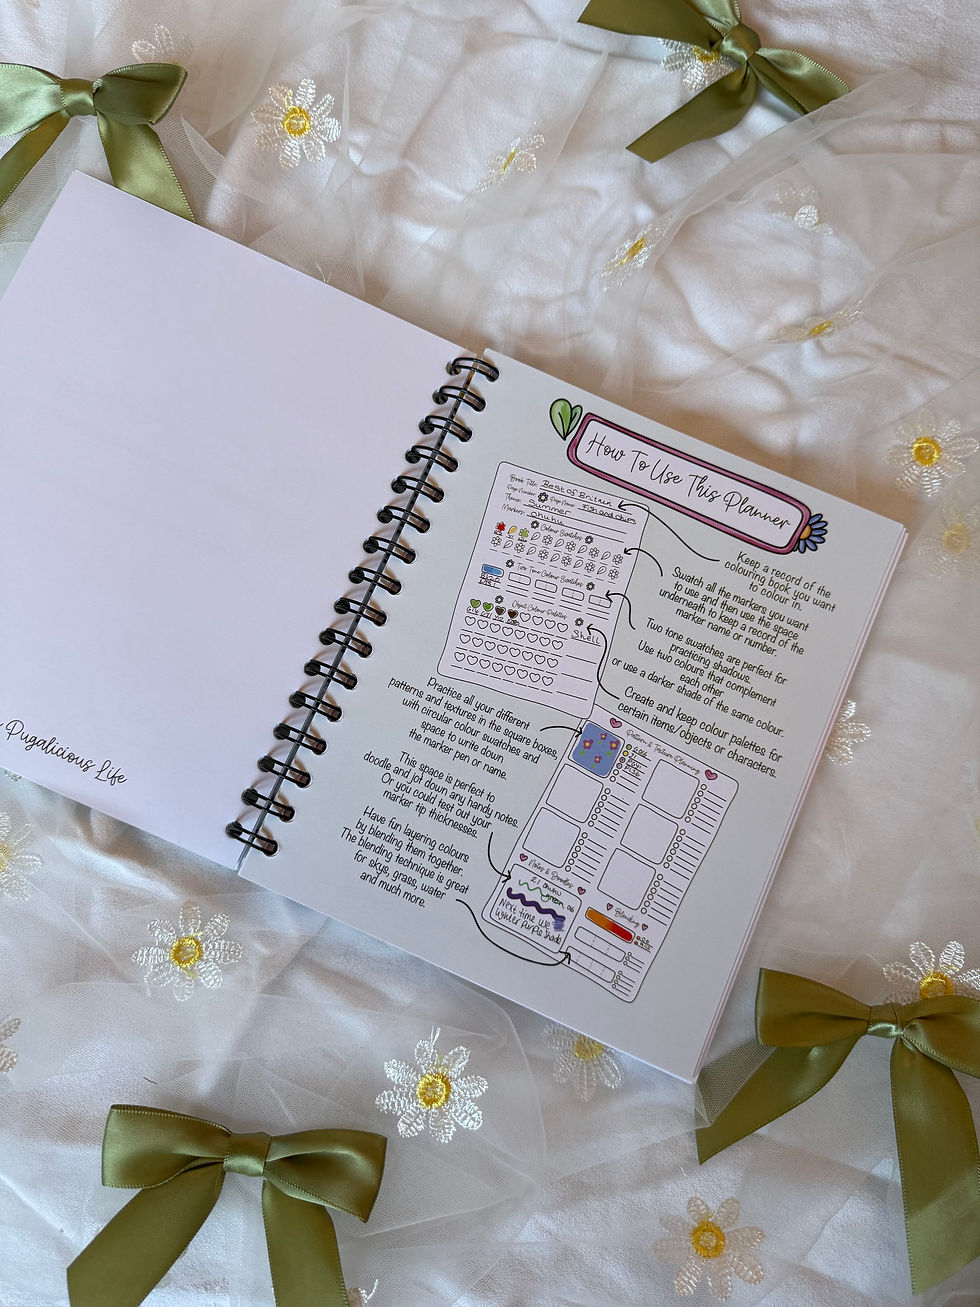 Pugalicious Life
How To Use This Planner
Book Title: Best of Britain
Page Number: Page Name: Fish and Chips
Theme: Summer
Markers: Ohuhu
Colour Swatches
Two Tone Colour Swatches
Object Colour Palettes
Shell
Keep a record of the
colouring book you want
to colour in.
Swatch all the markers you want
to use and then use the space
underneath to keep a record of the
marker name or number.
Two tone swatches are perfect for
practicing shadows.
Use two colours that complement
each other
or use a darker shade of the same colour.
Create and keep colour palettes for
certain items/objects or characters.
Practice all your different
patterns and textures in the square boxes,
with circular colour swatches and
space to write down
the marker pen or name.
This space is perfect to
doodle and jot down any handy notes.
Or you could test out your
marker tip thicknesses.
Have fun layering colours
by blending them together.
The blending technique is great
for skys, grass, water
and much more.
Pattern & Texture Planning
Notes & Doodles
Ohuhu
green
Next time use
lighter purple shade
Blending